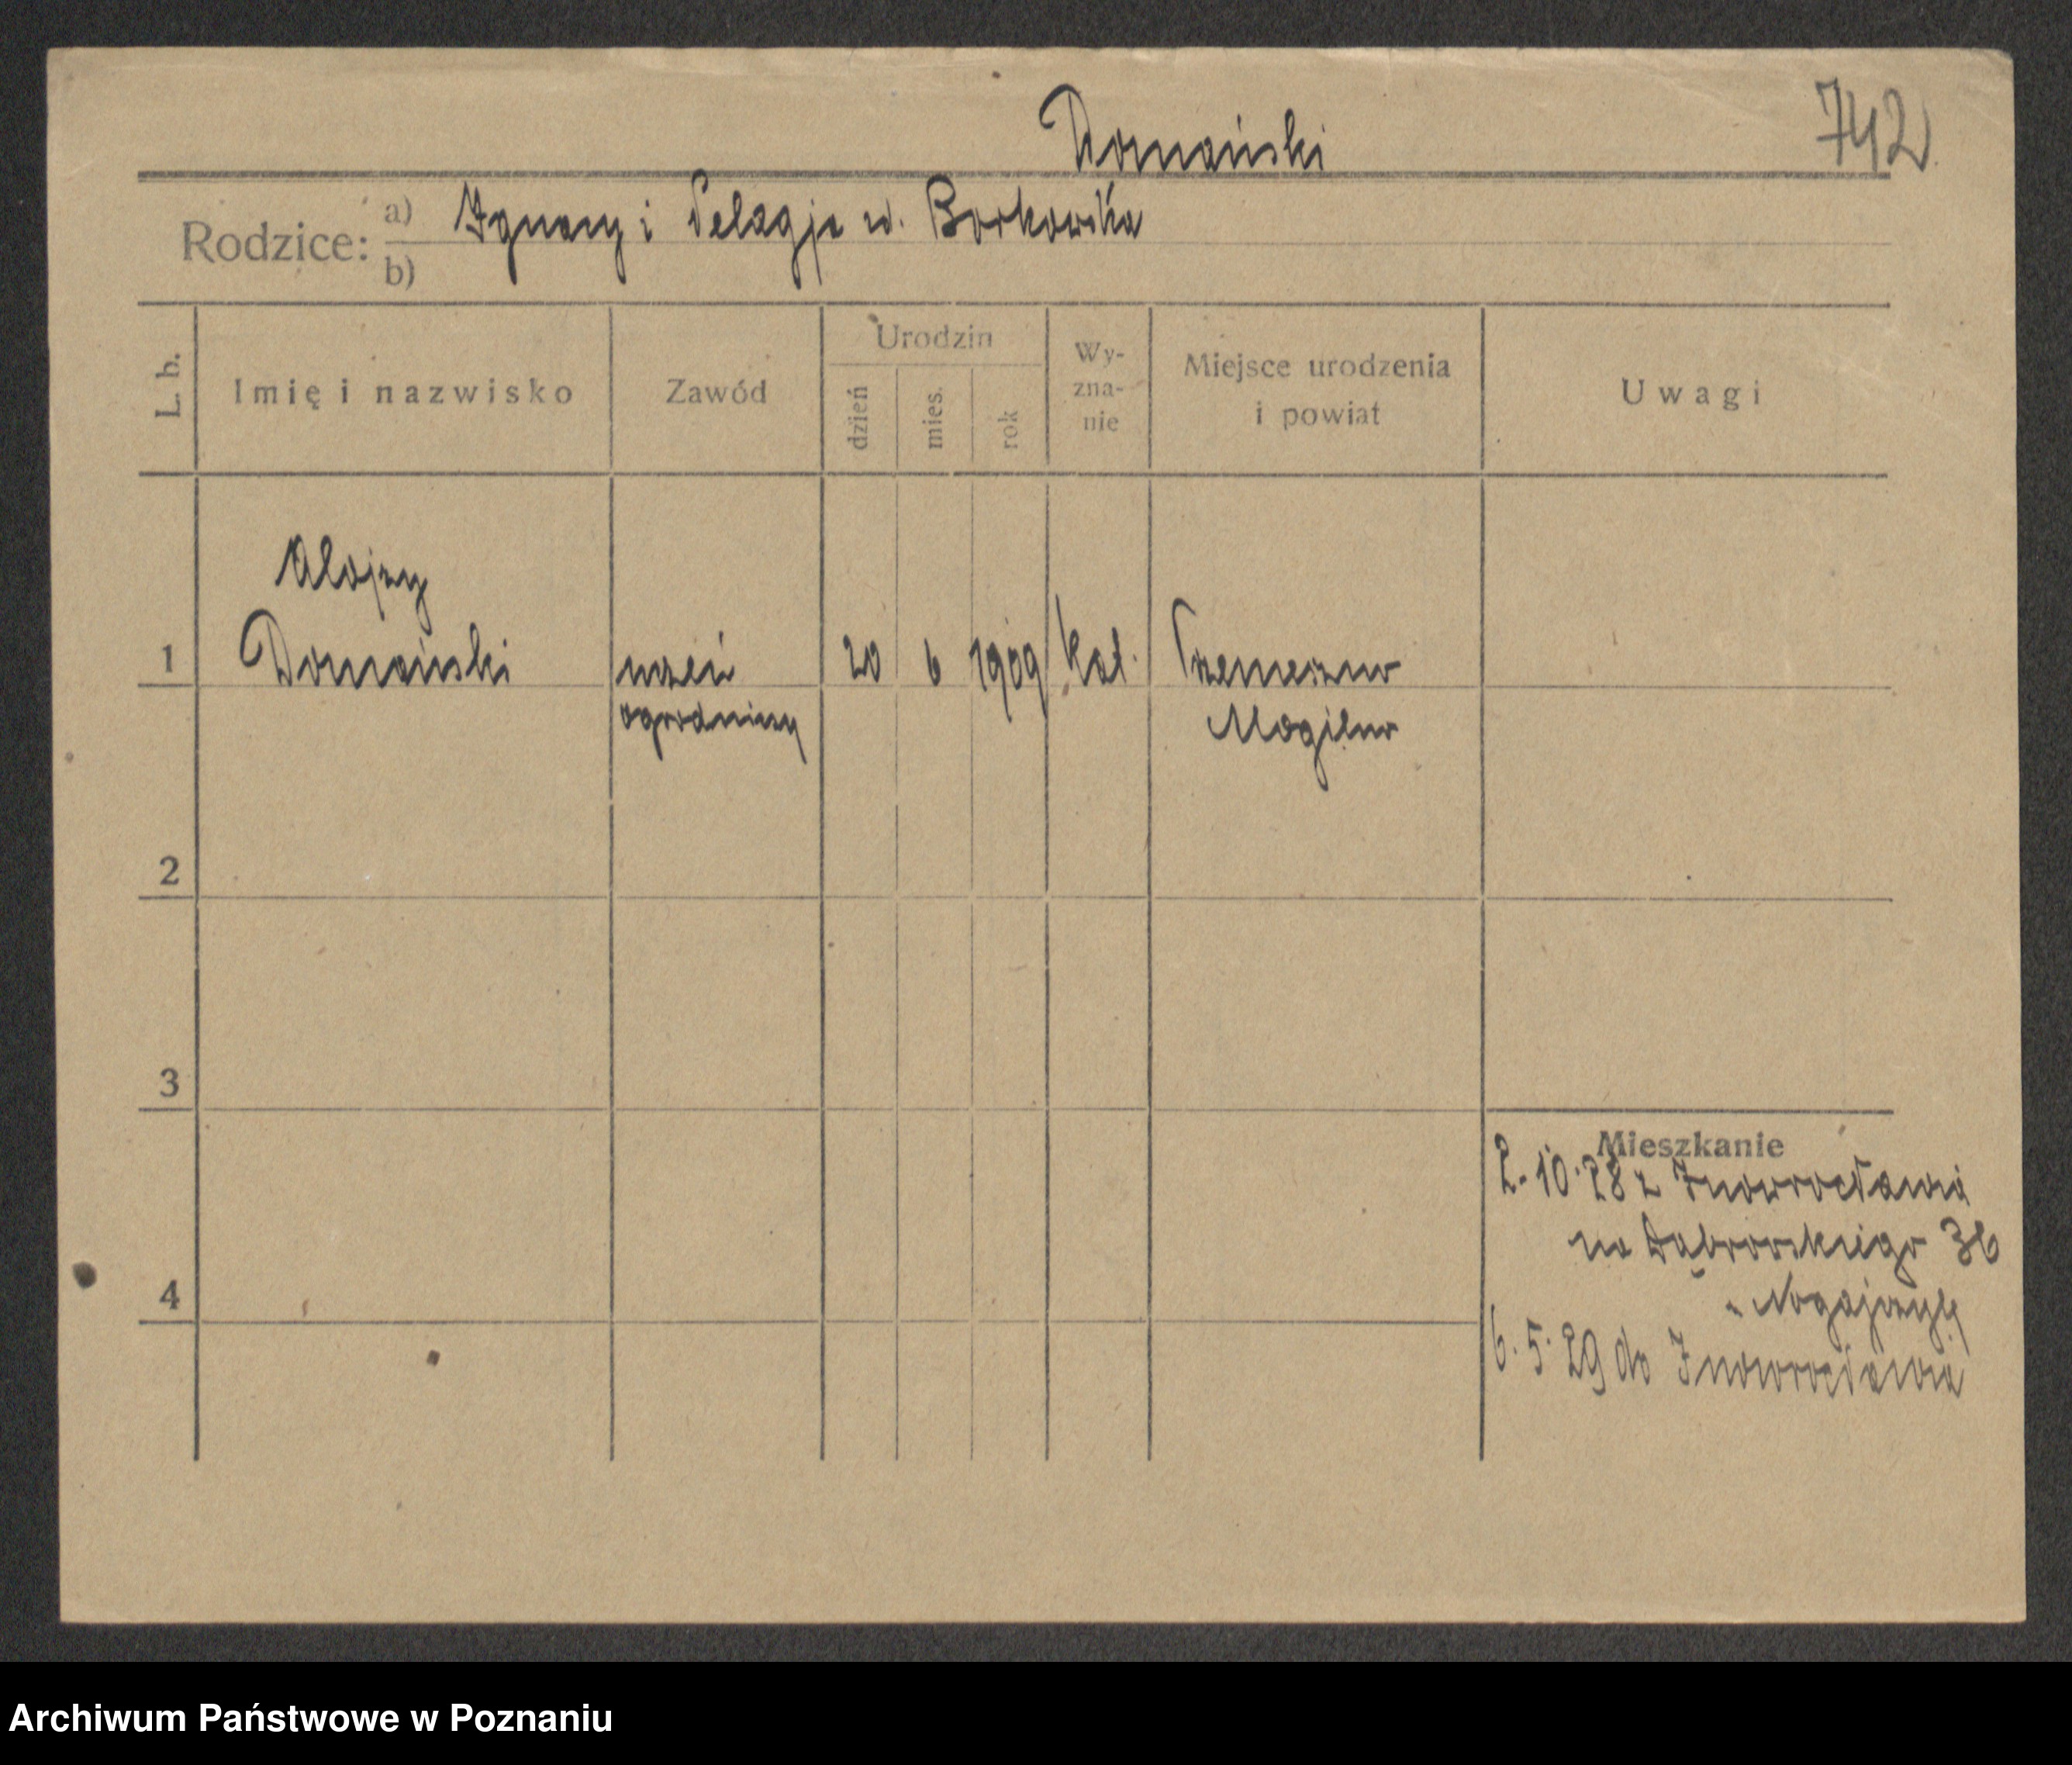 Domański
742
Rodzice: a) Ignacy i Pelagja u. Borkowska
b)
L. b.
Imię i nazwisko
Zawód
Urodzin
dzień
mies.
rok
Wy-
zna-
nie
Miejsce urodzenia
i powiat
Uwagi
Alojzy
1 Domański uczeń 20 6 1909 kat. Trzemeszno
ogrodniczy Mogilno
2
3
4
Mieszkanie
2.10.28 z Inowrocławia
na Dąbrowskiego 36
6.5.29 do Inowrocławia
Archiwum Państwowe w Poznaniu